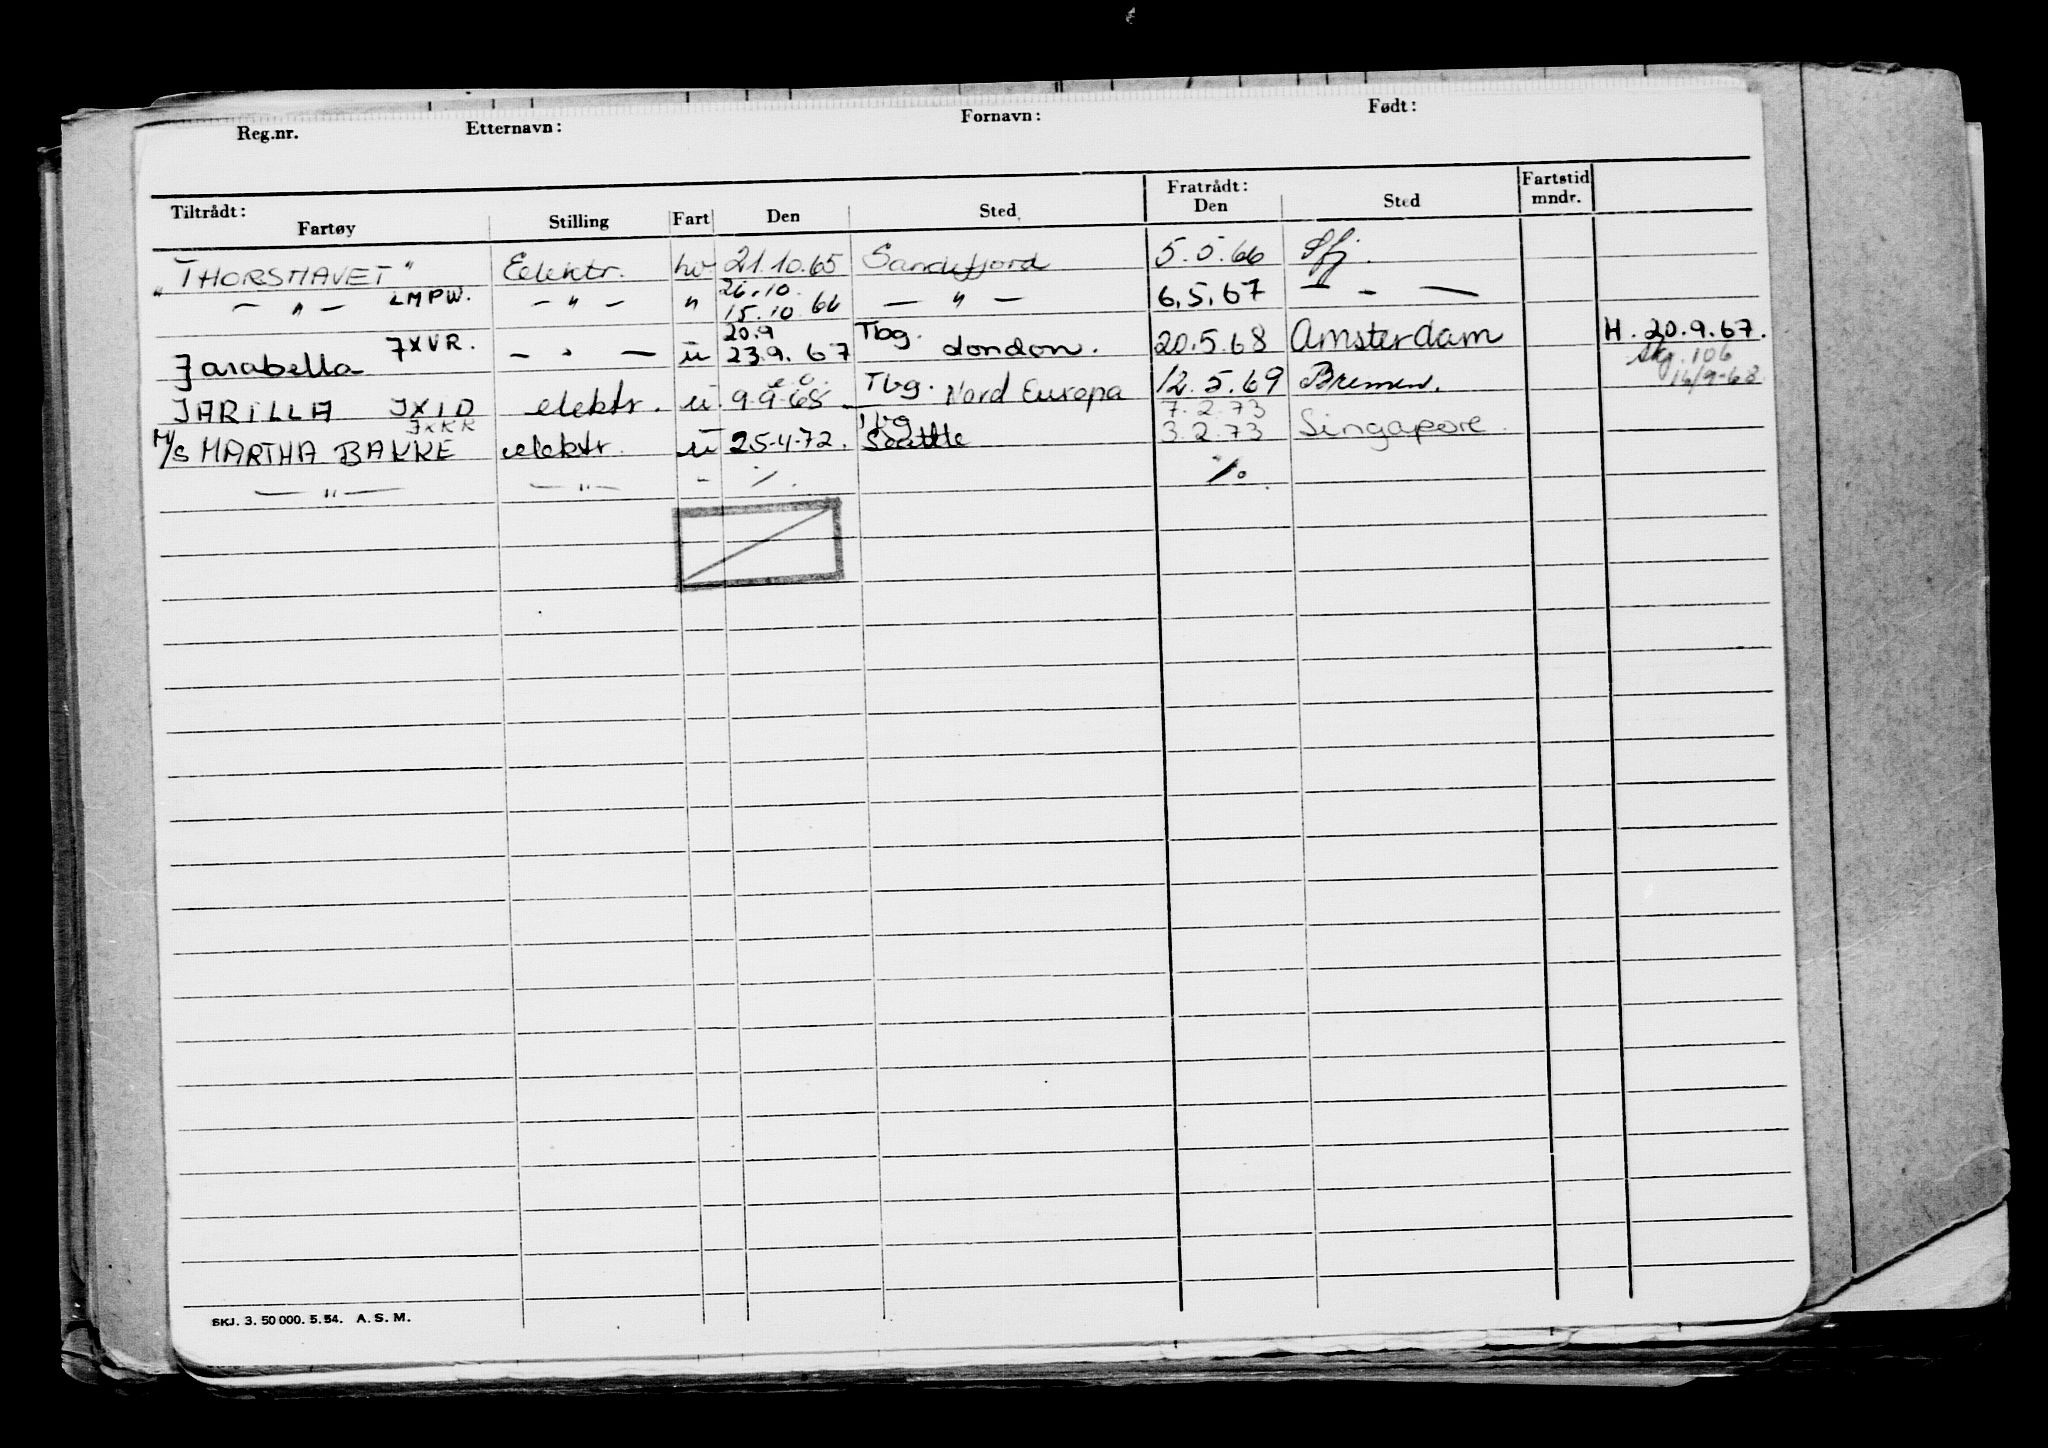 Reg.nr. Etternavn: Fornavn: Født:
Tiltrådt: Fratrådt: Fartstid
Fartøy Stilling Fart Den Sted Den Sted mndr.
"THORSHAVET" Elektr. hv 21.10.65 Sandefjord 5.5.66 Sfj.
26.10.
— " — LMPW. — " — " 15.10.66 — " — 6.5.67 — - —
20.9 Tbg.
Jarabella JXVR. — " — u 23.9.67 London. 20.5.68 Amsterdam H. 20.9.67.
skj. 106
16/9-68
JARILLA JXID elektr. u 9.9.68 Tbg. Nord Europa 12.5.69 Bremen.
JXKR Tbg 7.2.73
M/S MARTHA BAKKE elektr. u 25-4-72. Seattle 3.2.73 Singapore.
— " — — " — - ⁒. ⁒.
SKJ. 3. 50 000. 5. 54. A. S. M.